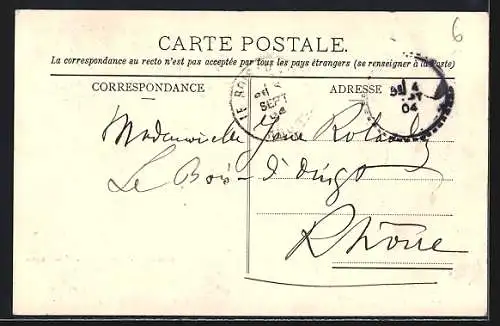 6
CARTE POSTALE.
La correspondance au recto n'est pas acceptée par tous les pays étrangers (se renseigner à la Poste)
CORRESPONDANCE ADRESSE
SEPT
04
04
Mademoiselle Jane
Le Bois-d'Oingt
Rhône